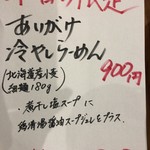 限定
ありがけ
冷やしらーめん
900円
(北海道産小麦
細麺180g)
・煮干し塩スープに
鶏清湯醤油スープジュレをプラス。